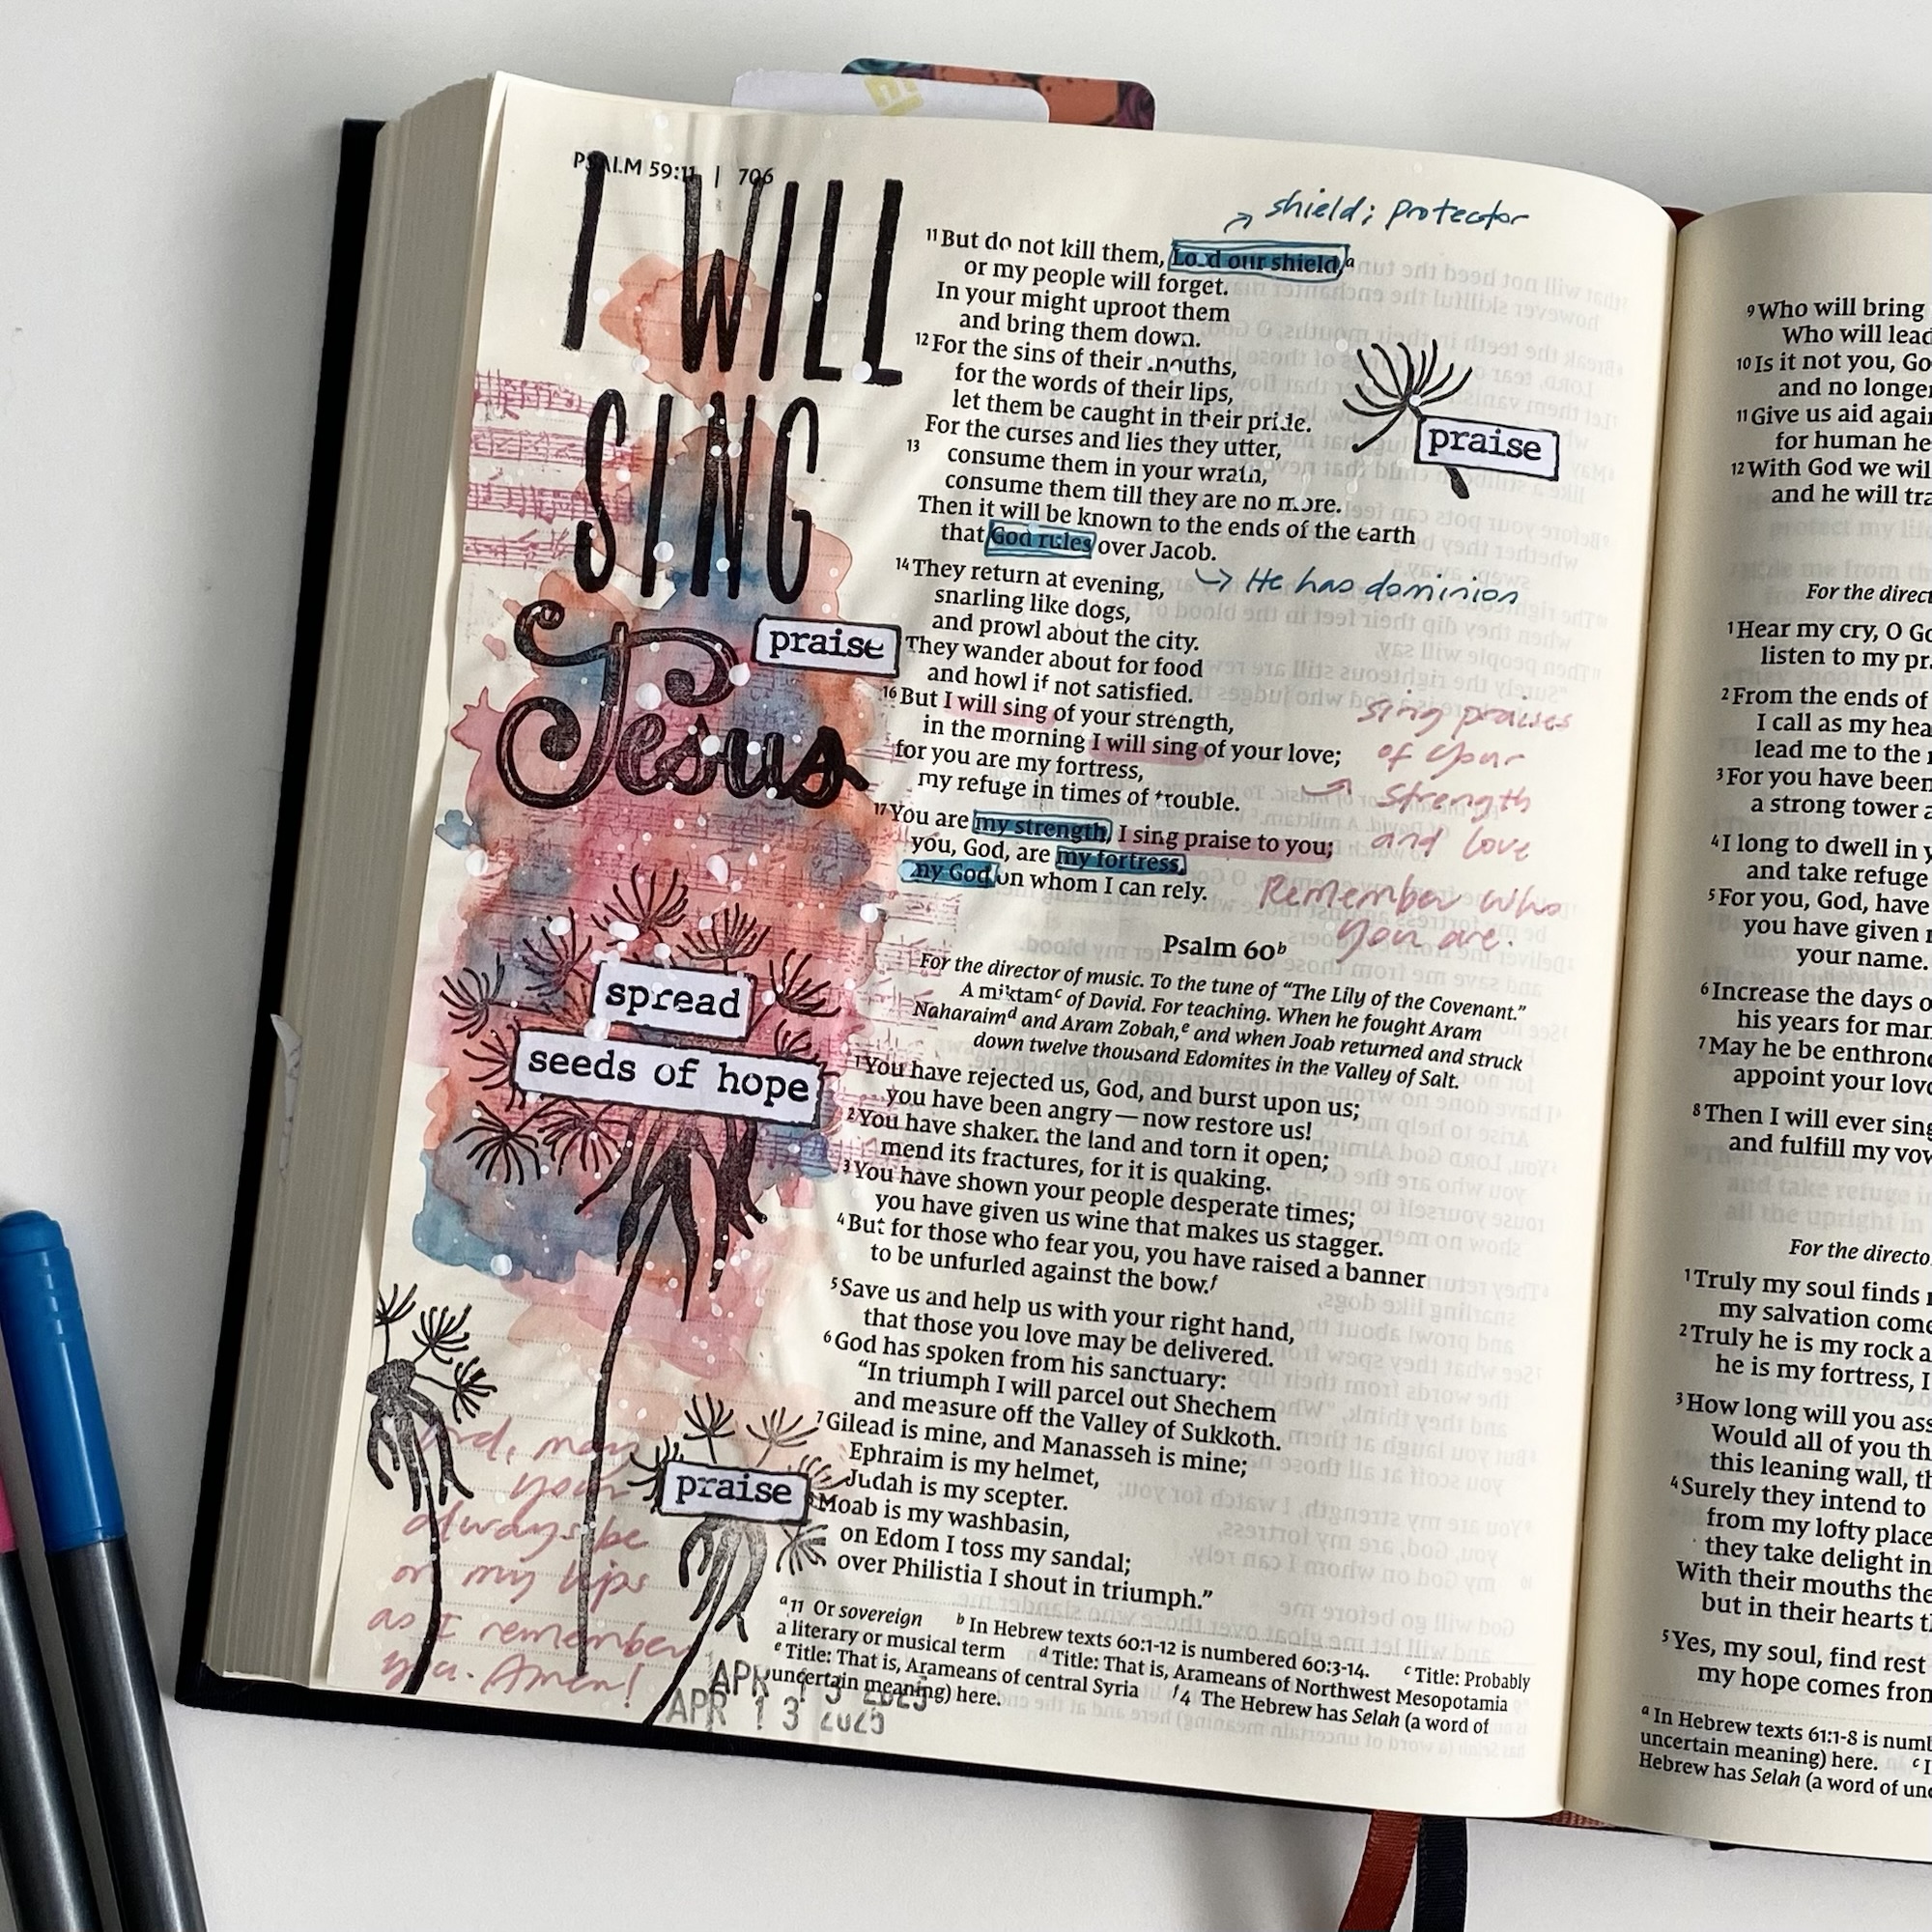 PSALM 59:11 | 706
I WILL
SING
Jesus
praise
spread
seeds of hope
praise
Lord, may
your
always be
on my lips
as I remember
you. Amen!
APR 13 2025
APR 13 2025
shield; protector
11 But do not kill them, Lord our shield,a
or my people will forget.
In your might uproot them
and bring them down.
12 For the sins of their mouths,
for the words of their lips,
let them be caught in their pride.
For the curses and lies they utter,
13 consume them in your wrath,
consume them till they are no more.
Then it will be known to the ends of the earth
that God rules over Jacob.
He has dominion
praise
14 They return at evening,
snarling like dogs,
and prowl about the city.
They wander about for food
and howl if not satisfied.
16 But I will sing of your strength,
in the morning I will sing of your love;
for you are my fortress,
my refuge in times of trouble.
sing praises
of your
strength
and love
17 You are my strength, I sing praise to you;
you, God, are my fortress,
my God on whom I can rely.
Remember who
you are.
Psalm 60b
For the director of music. To the tune of “The Lily of the Covenant.”
A miktamc of David. For teaching. When he fought Aram
Naharaimd and Aram Zobah,e and when Joab returned and struck
down twelve thousand Edomites in the Valley of Salt.
1 You have rejected us, God, and burst upon us;
you have been angry — now restore us!
2 You have shaken the land and torn it open;
mend its fractures, for it is quaking.
3 You have shown your people desperate times;
you have given us wine that makes us stagger.
4 But for those who fear you, you have raised a banner
to be unfurled against the bow.f
5 Save us and help us with your right hand,
that those you love may be delivered.
6 God has spoken from his sanctuary:
“In triumph I will parcel out Shechem
and measure off the Valley of Sukkoth.
7 Gilead is mine, and Manasseh is mine;
Ephraim is my helmet,
Judah is my scepter.
Moab is my washbasin,
on Edom I toss my sandal;
over Philistia I shout in triumph.”
a 11 Or sovereign b In Hebrew texts 60:1-12 is numbered 60:3-14. c Title: Probably
a literary or musical term d Title: That is, Arameans of Northwest Mesopotamia
e Title: That is, Arameans of central Syria f 4 The Hebrew has Selah (a word of
uncertain meaning) here.
9 Who will bring
Who will lead
10 Is it not you, Go
and no longer
11 Give us aid agai
for human he
12 With God we wil
and he will tra
For the direct
1 Hear my cry, O Go
listen to my pr
2 From the ends of
I call as my hea
lead me to the
3 For you have been
a strong tower a
4 I long to dwell in y
and take refuge
5 For you, God, have
you have given
your name.
6 Increase the days o
his years for man
7 May he be enthrone
appoint your love
8 Then I will ever sing
and fulfill my vow
For the directo
1 Truly my soul finds
my salvation come
2 Truly he is my rock a
he is my fortress, I
3 How long will you ass
Would all of you th
this leaning wall, th
4 Surely they intend to
from my lofty place
they take delight in
With their mouths the
but in their hearts th
5 Yes, my soul, find rest
my hope comes from
a In Hebrew texts 61:1-8 is numb
uncertain meaning) here. c I
Hebrew has Selah (a word of unc